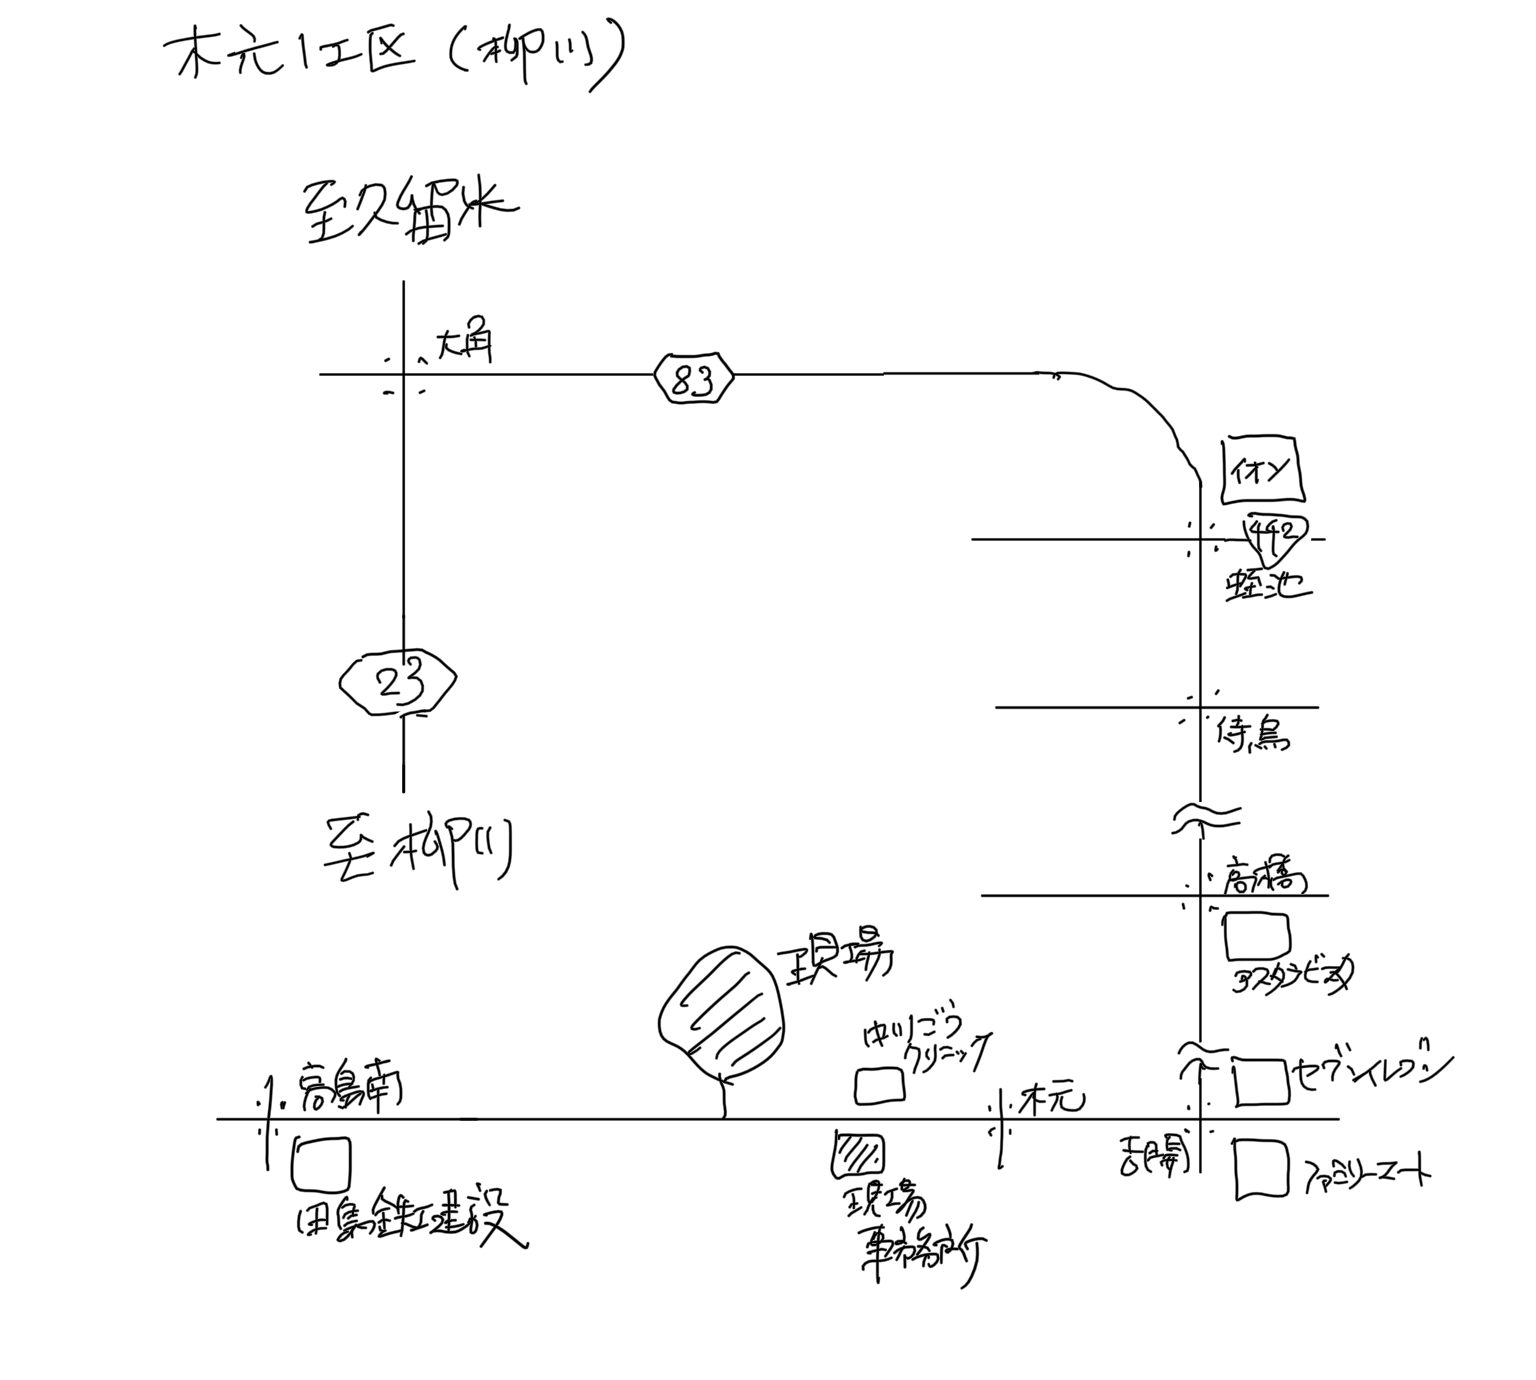 木元1工区(柳川)
至久留米
大角
83
イオン
442
蛭池
23
侍島
至柳川
高橋
アスタラビスタ
現場
中川ごう
クリニック
セブンイレブン
高島南
木元
吉開
ファミリーマート
田島鉄工建設
現場
事務所